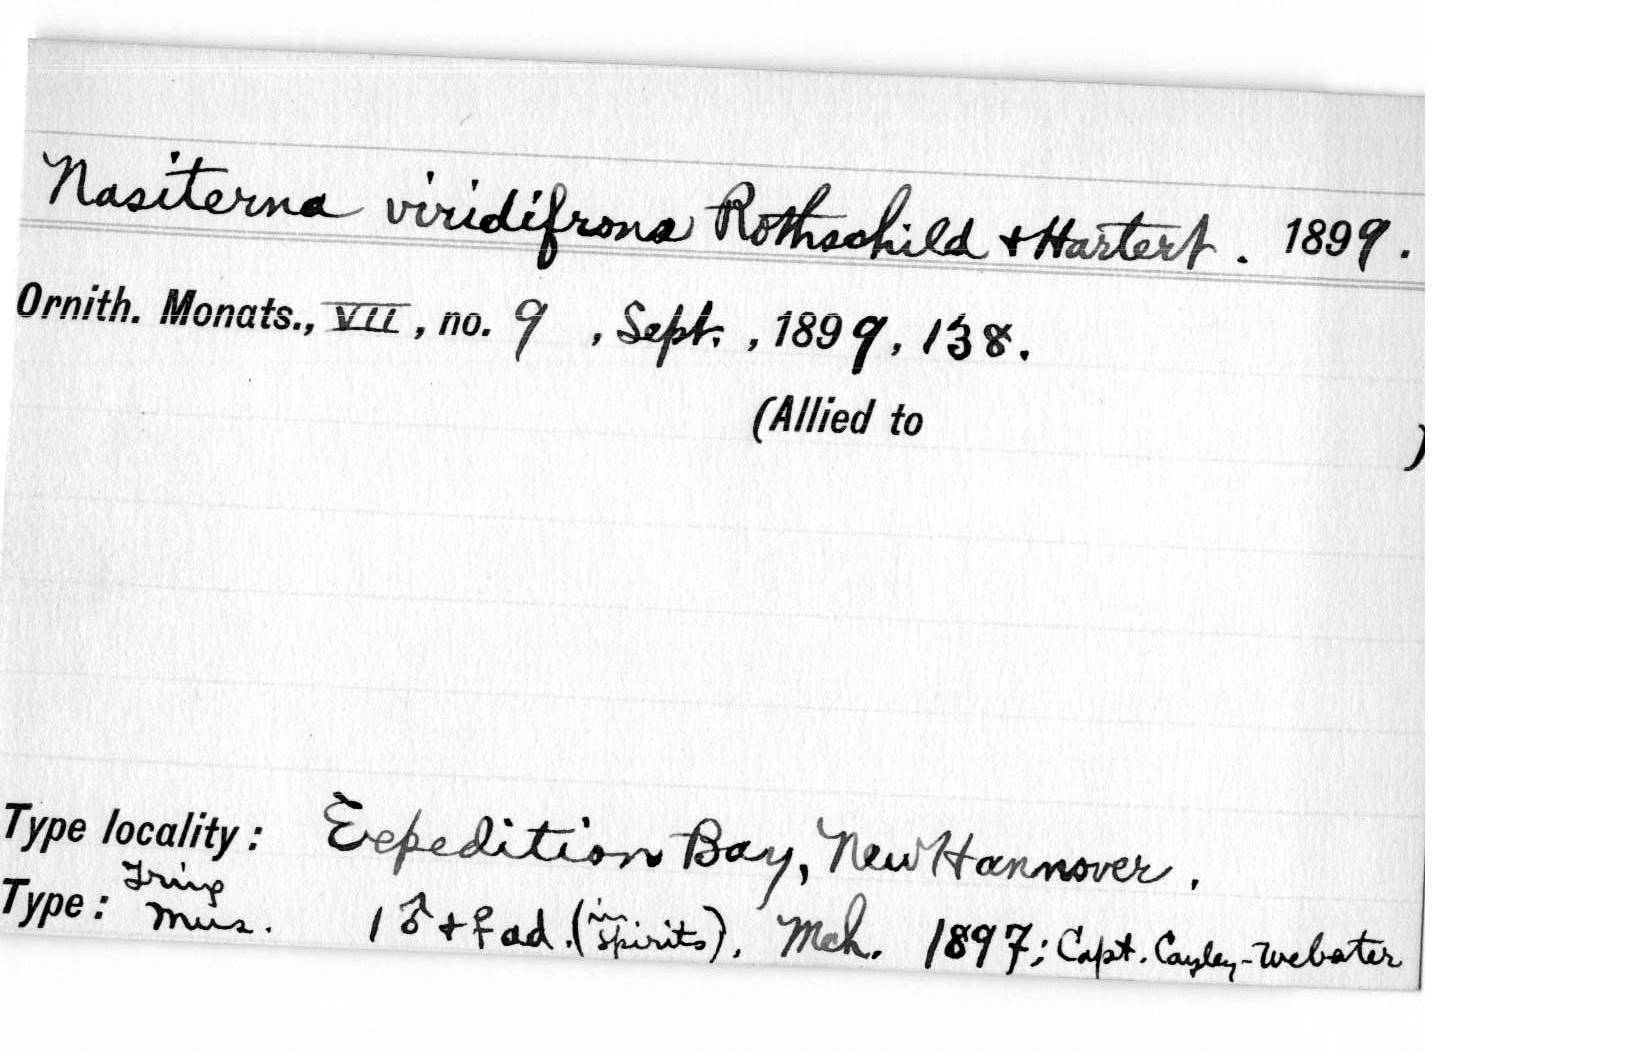 Nasiterna viridifrons Rothschild + Hartert. 1899.
Ornith. Monats., VII, no. 9, Sept., 1899, 138.
(Allied to )
Type locality: Expedition Bay, New Hannover.
Type: Tring Mus. 1 ♂ + ♀ ad. (in spirits), Mch. 1897; Capt. Cayley-Webster